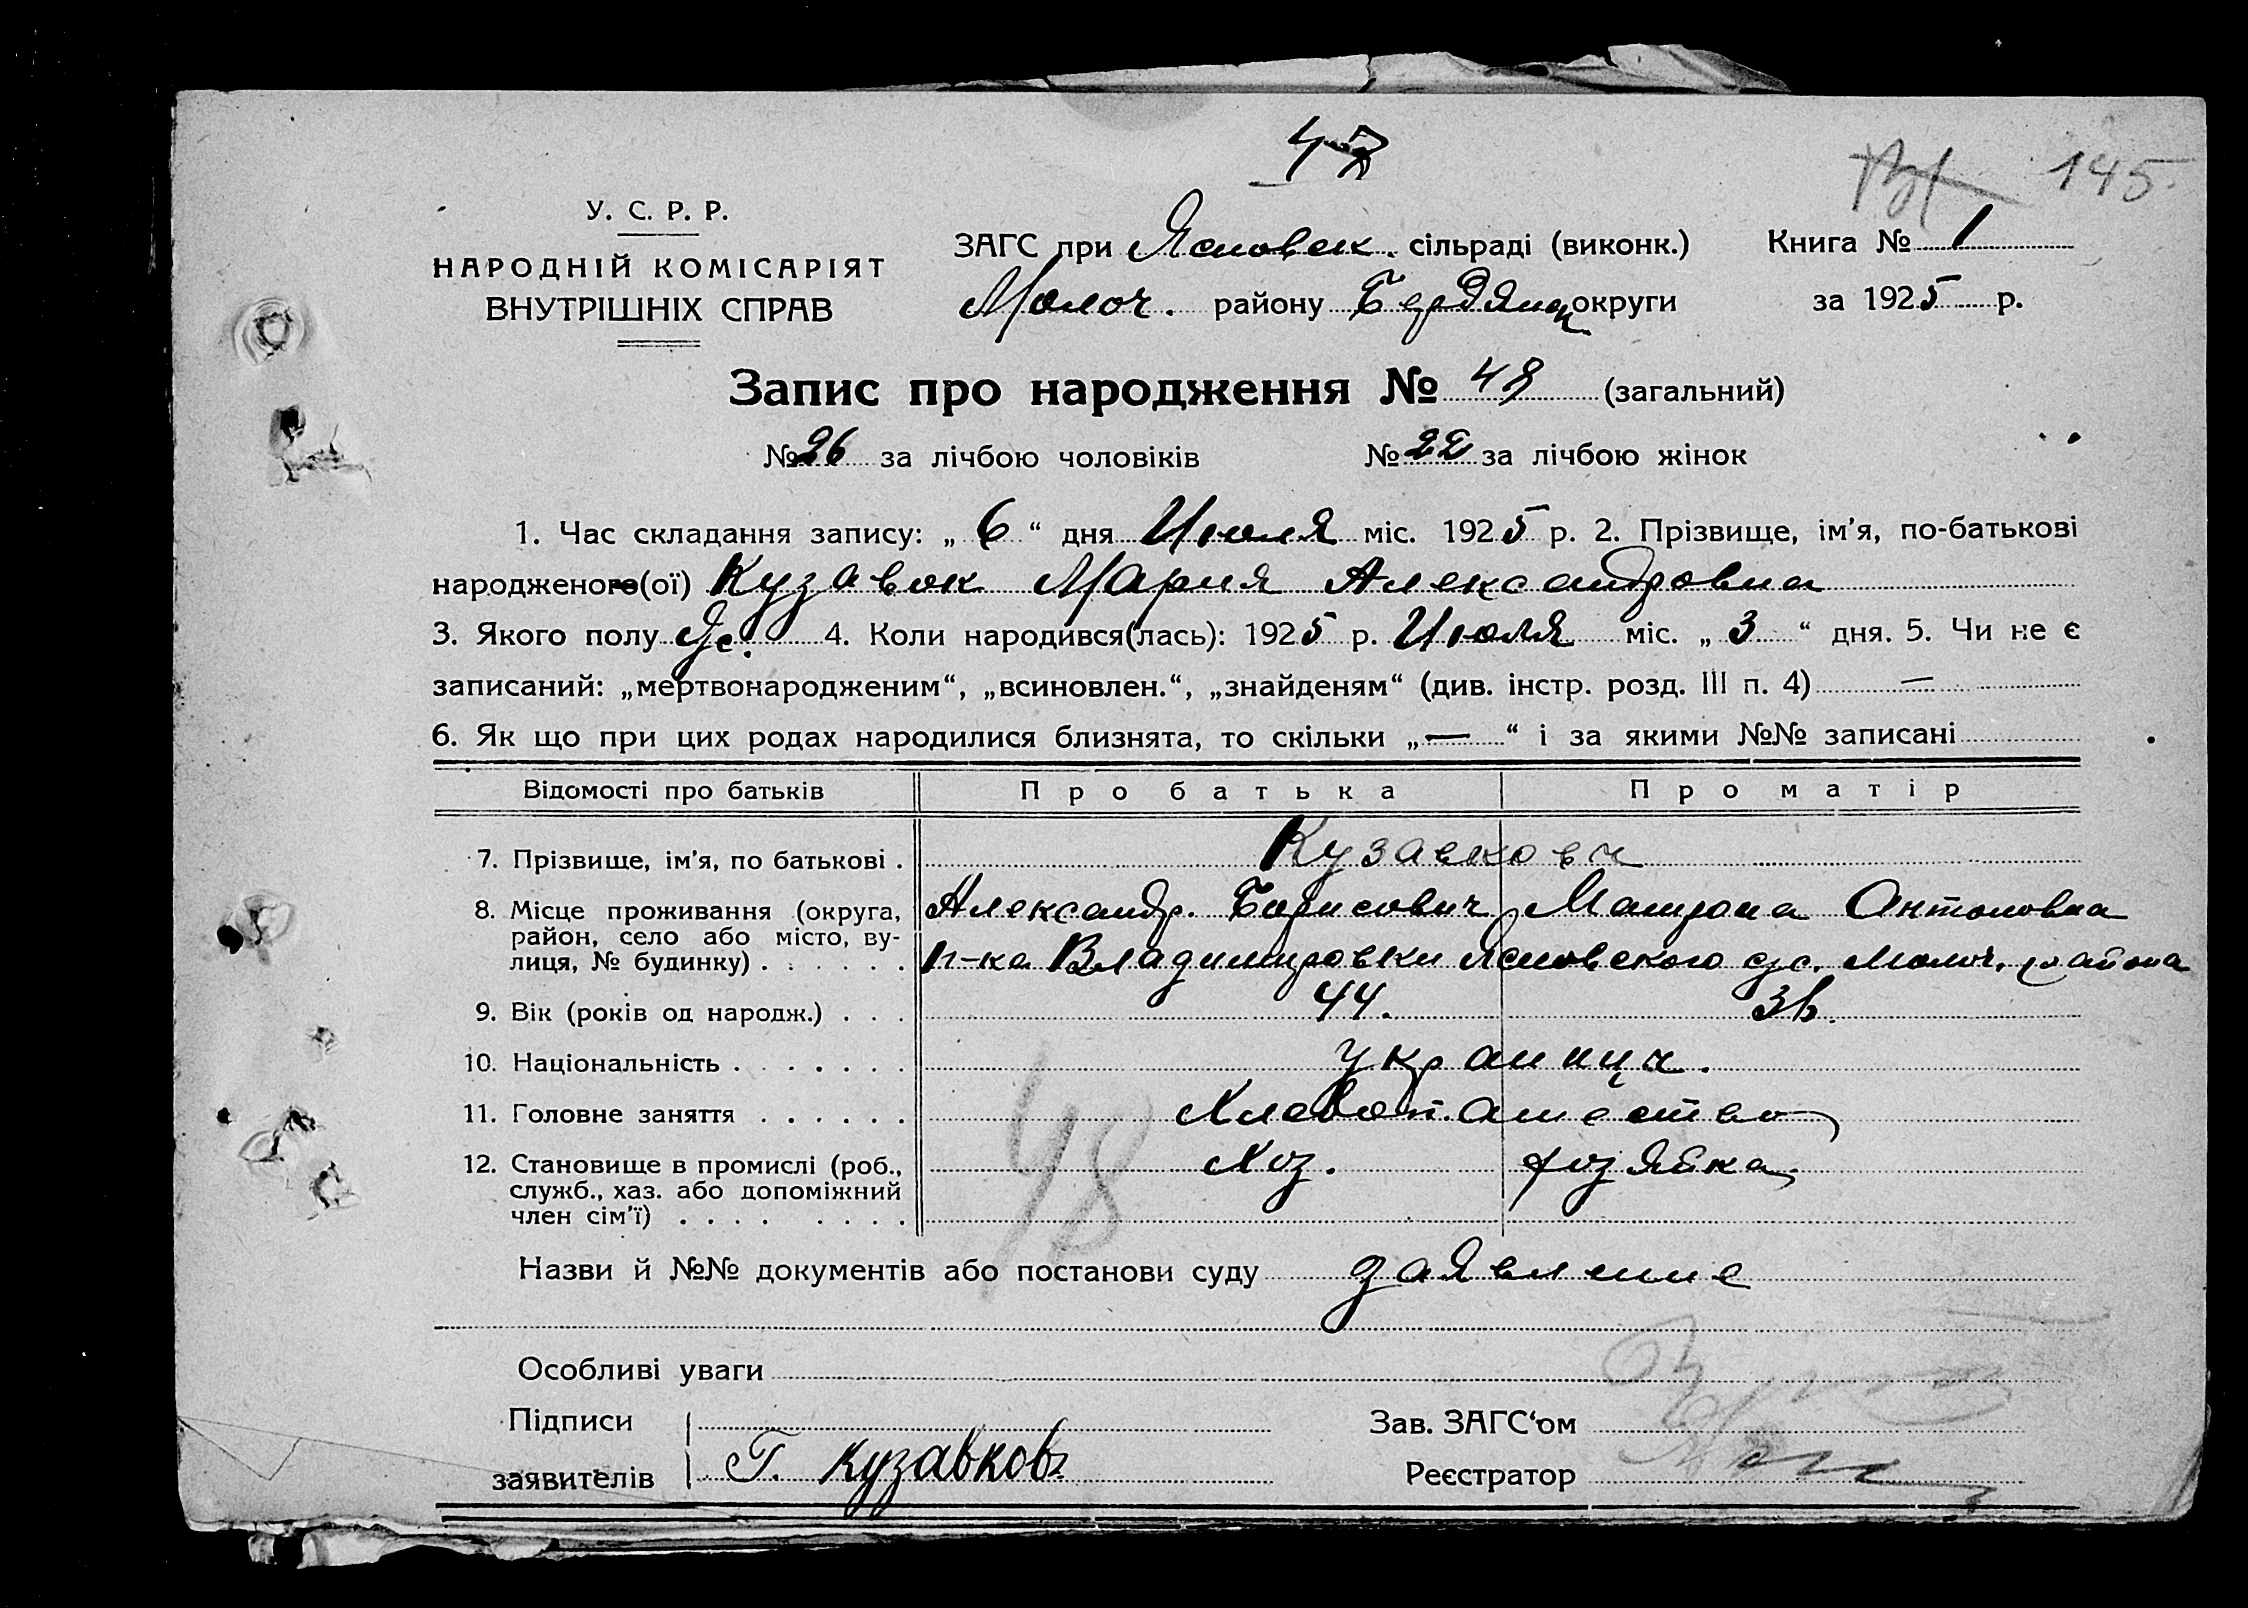 145
У. С. Р. Р.
НАРОДНІЙ КОМІСАРІЯТ
ВНУТРІШНІХ СПРАВ
ЗАГС при Ясновск. сільраді (виконк.)
Молоч. району Бердянск округи
Книга № 1
за 1925 р.
Запис про народження № 48 (загальний)
№ 26 за лічбою чоловіків № 22 за лічбою жінок
1. Час складання запису: „ 6 “ дня Июля міс. 1925 р. 2. Прізвище, ім'я, по-батькові
народженого(ої) Кузавок Мария Александровна
3. Якого полу Же. 4. Коли народився(лась): 1925 р. Июля міс. „ 3 “ дня. 5. Чи не є
записаний: „мертвонародженим“, „всиновлен.“, „знайденям“ (див. інстр. розд. III п. 4) —
6. Як що при цих родах народилися близнята, то скільки „ — “ і за якими №№ записані
Відомості про батьків Про батька Про матір
7. Прізвище, ім'я, по батькові . Кузавкови
8. Місце проживання (округа, Александр. Борисович Матрона Антоновна
район, село або місто, ву-
лиця, № будинку) . . . . . . п-ка Владимировки Ясновского с/с. Молоч. района
9. Вік (років од народж.) . . . 44. 36.
10. Національність . . . . . . . украинц.
11. Головне заняття . . . . . . Хлебопашество
12. Становище в промислі (роб., Хоз. хозяйка
служб., хаз. або допоміжний
член сім'ї) . . . . . . . .
48
Назви й №№ документів або постанови суду заявление
Особливі уваги
Підписи
заявителів Г. Кузавковъ
Зав. ЗАГС'ом
Реєстратор